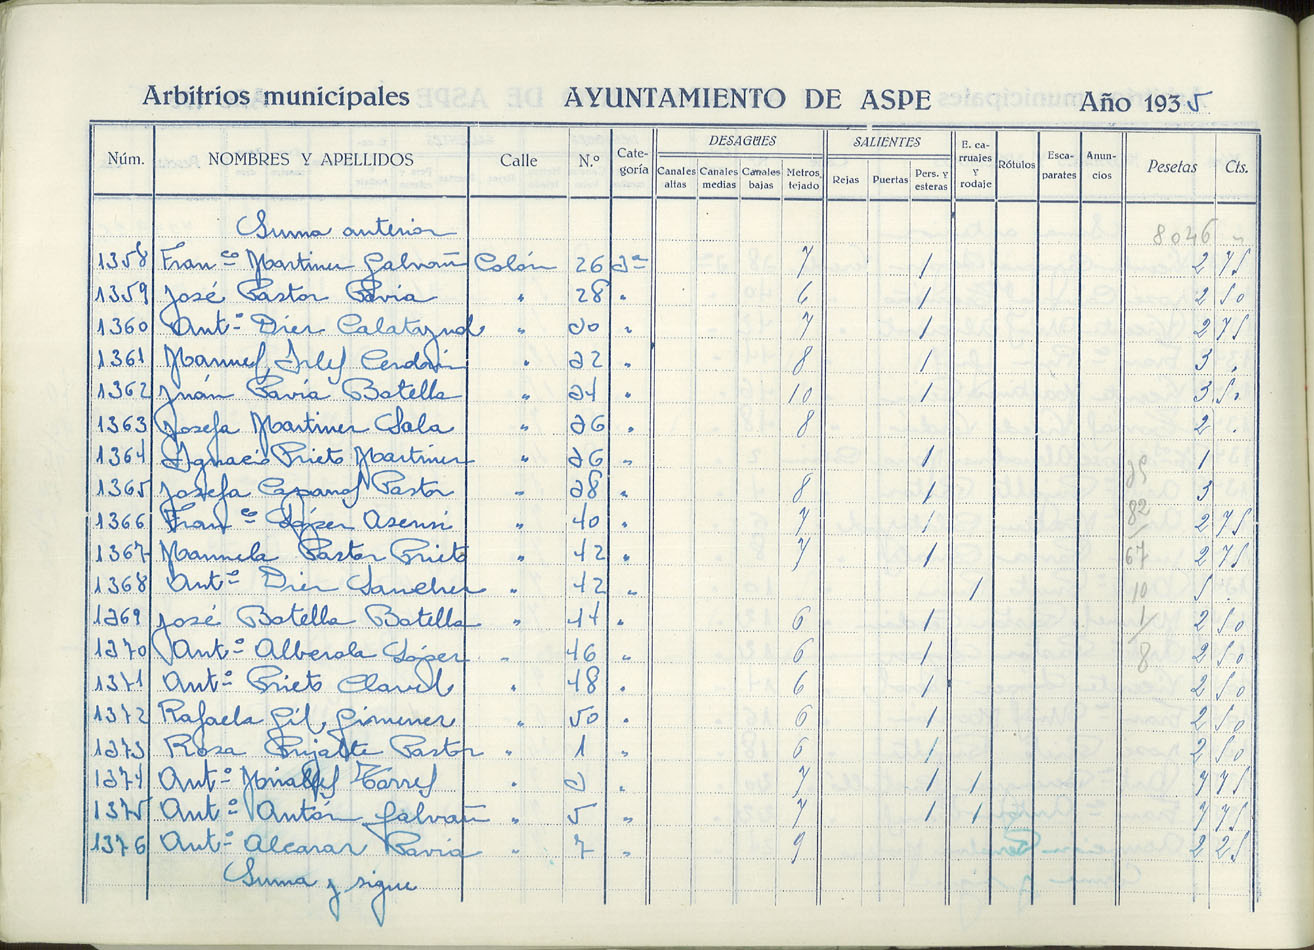 Arbitrios municipales AYUNTAMIENTO DE ASPE Año 1935
Núm. NOMBRES Y APELLIDOS Calle N.º Cate-goría DESAGÜES SALIENTES E. carruajes y rodaje Rótulos Esca-parates Anun-cios Pesetas Cts.
Canales altas Canales medias Canales bajas Metros tejado Rejas Puertas Pers. y esteras
Suma anterior 8046 "
1358 Fran.co Martinez Galvañ Colón 26 3ª 7 1 2 75
1359 José Pastor Pavia " 28 " 6 1 2 50
1360 Ant.º Diez Calatayud " 30 " 7 1 2 75
1361 Manuel " 32 " 8 1 3 "
1362 Juán Pavia Botella " 34 " 10 1 3 50
1363 Josefa Martinez Sala " 36 " 8 2
1364 Ignacio Prieto Martinez " 36 " 1 1
1365 Josefa Pastor " 38 " 8 1 3
1366 Fran.co López Asensi " 40 " 7 1 2 75
1367 Manuela Pastor Prieto " 42 " 7 1 2 75
1368 Ant.º Diez Sanchez " 42 " 1 5
1369 José Botella Botella " 44 " 6 1 2 50
1370 Ant.º Alberola López " 46 " 6 1 2 50
1371 Ant.º Prieto Clavel " 48 " 6 1 2 50
1372 Rafaela Gil Gimenez " 50 " 6 1 2 50
1373 Rosa Pastor " 1 " 6 1 2 50
1374 Ant.º Miralles Torres " 3 " 7 1 1 7 75
1375 Ant.º Antón Galvañ " 5 " 7 1 1 7 75
1376 Ant.º Alcaraz Pavia " 7 " 9 2 25
Suma y sigue
82
67
10
1
8